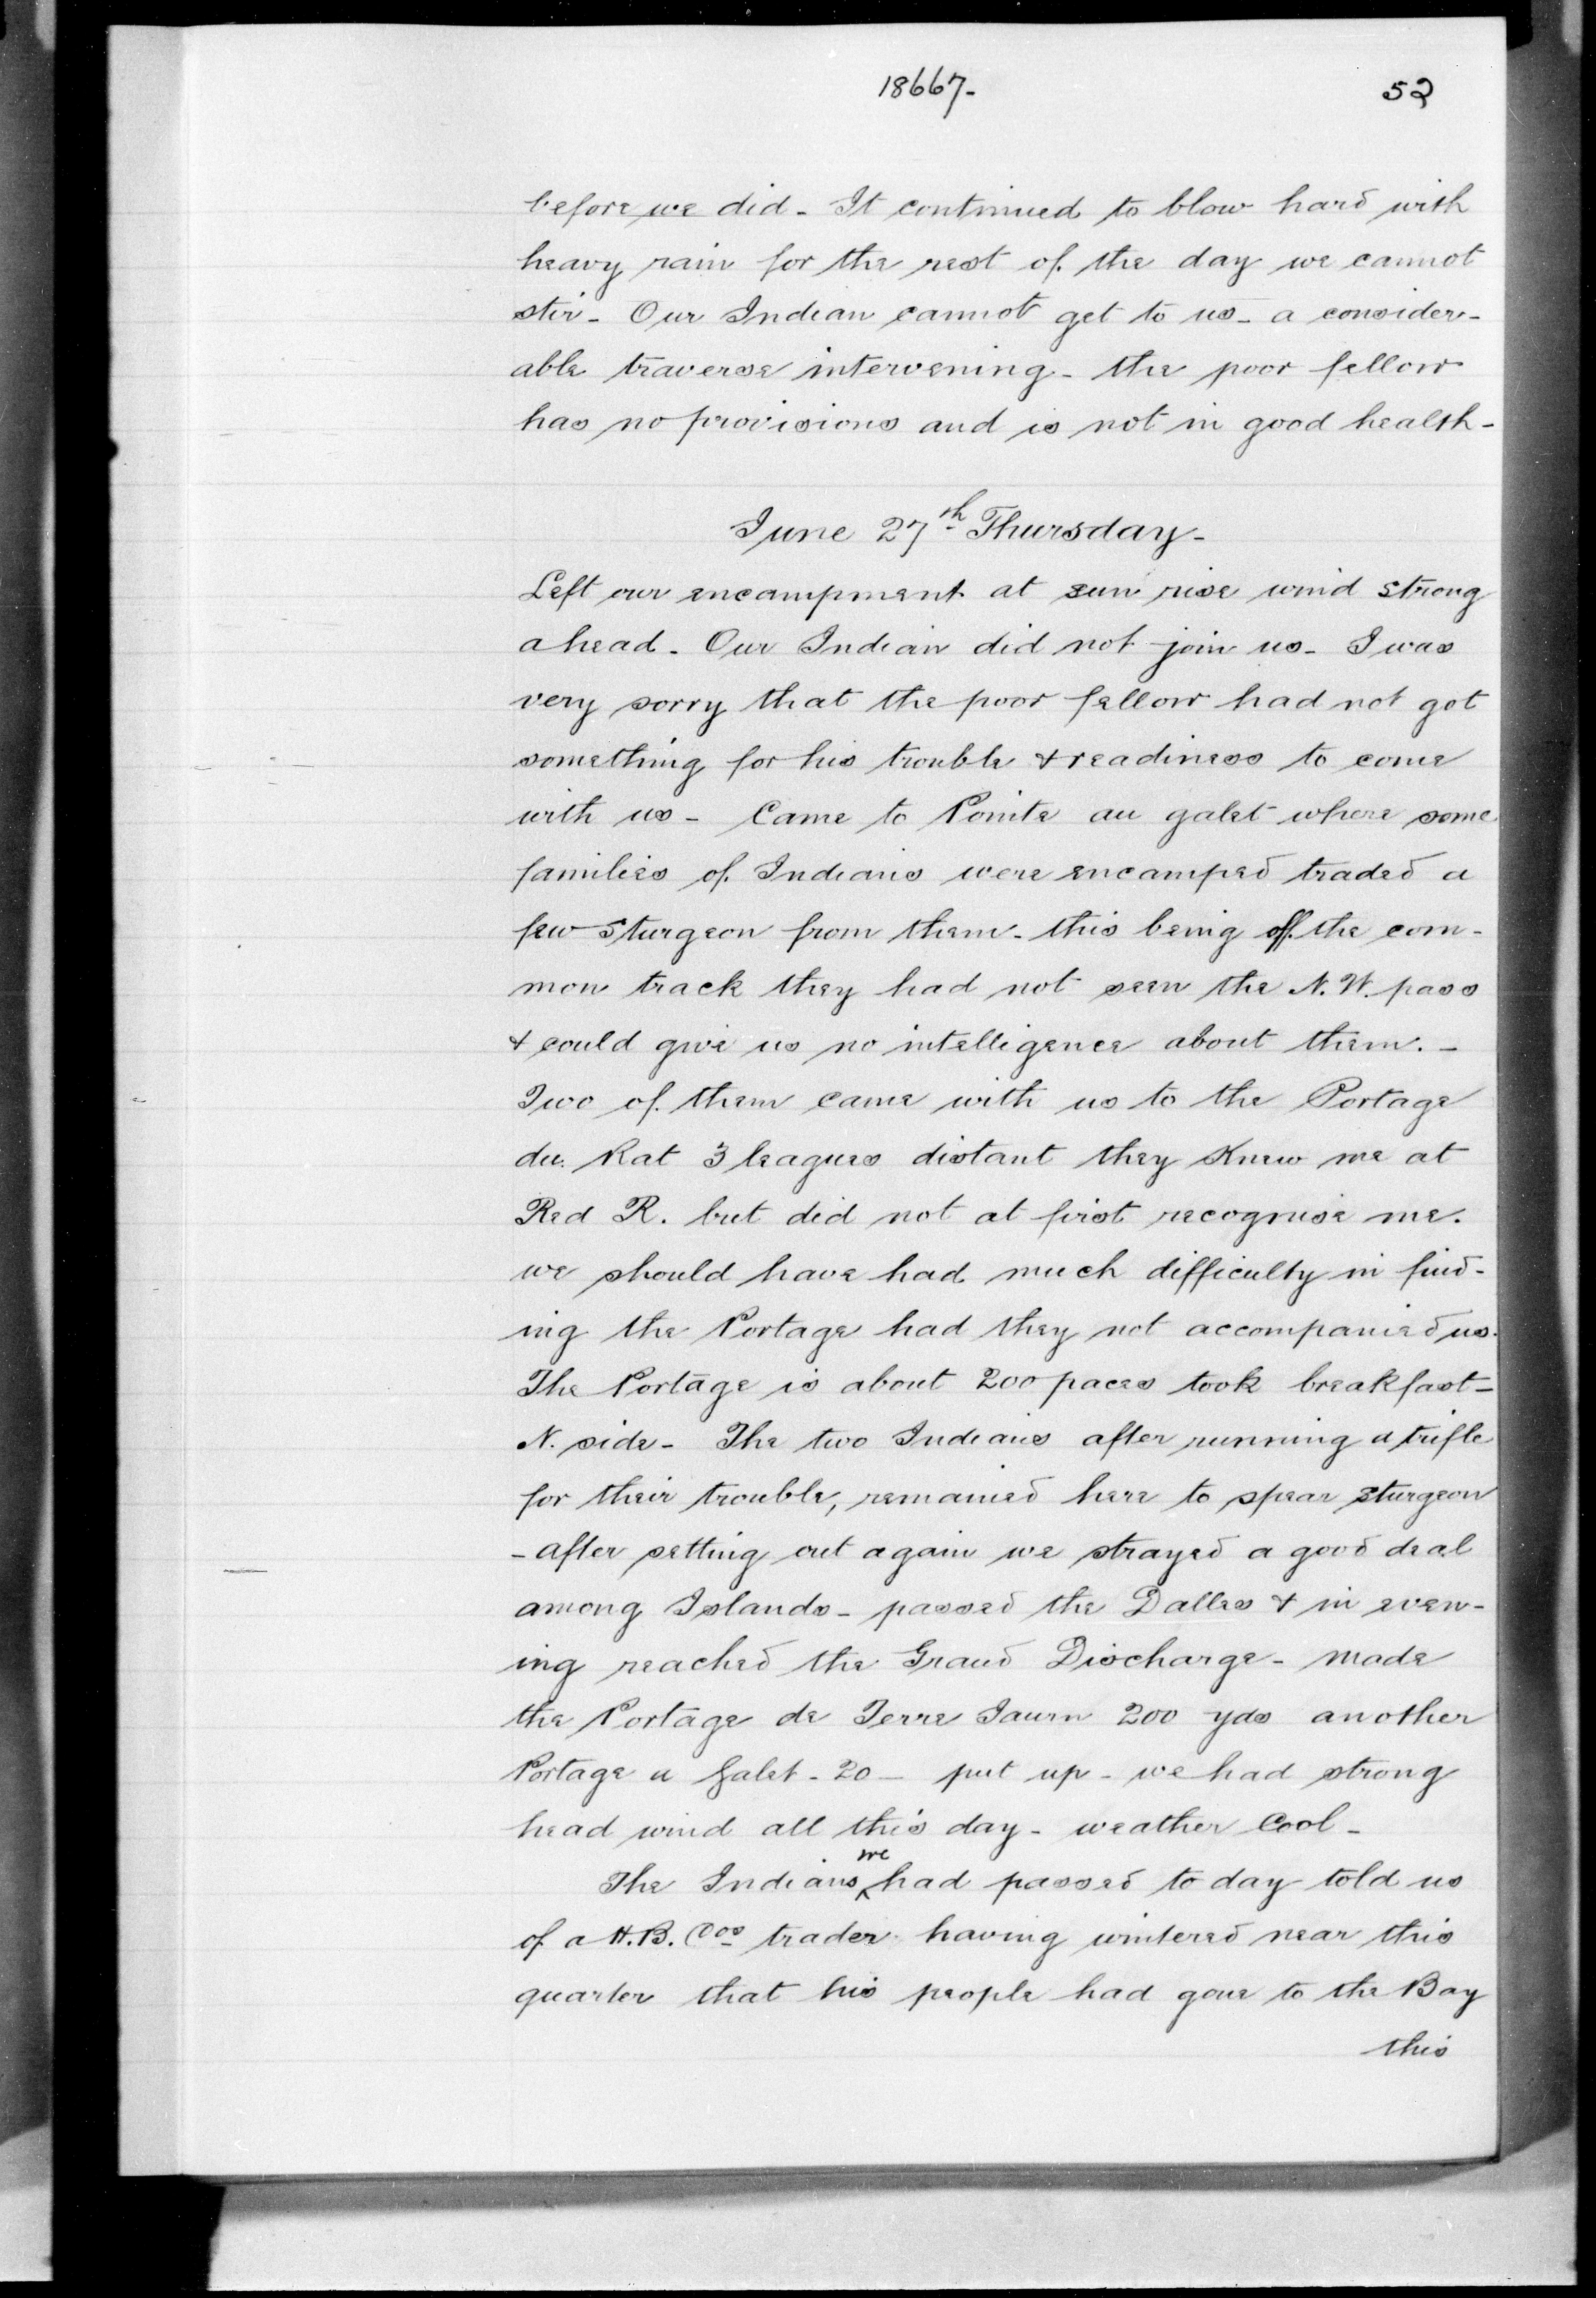 18667- 52
before we did - It continued to blow hard with
heavy rain for the rest of the day we cannot
stir - Our Indian cannot get to us - a consider-
able traverse intervening - the poor fellow
has no provisions and is not in good health -
June 27th Thursday -
Left our encampment at sun rise wind strong
ahead - Our Indian did not join us - I was
very sorry that the poor fellow had not got
something for his trouble & readiness to come
with us - Came to Pointe au galet where some
families of Indians were encamped traded a
few Sturgeon from them - this being off the com-
mon track they had not seen the N.W. pass
& could give us no intelligence about them. -
Two of them came with us to the Portage
du Rat 3 leagues distant they Knew me at
Red R. but did not at first recognise me.
we should have had much difficulty in find-
ing the Portage had they not accompanied us.
The Portage is about 200 paces took breakfast -
N. side - The two Indians after running a trifle
for their trouble, remained here to spear sturgeon
- after setting out again we strayed a good deal
among Islands - passed the Dalles & in even-
ing reached the Grand Discharge - made
the Portage de Terre Jaurn 200 yds another
Portage a Galet - 20 - put up - we had strong
head wind all this day - weather Cool -
The Indians we had passed to day told us
of a H.B. Cos trader having wintered near this
quarter that his people had gone to the Bay
this